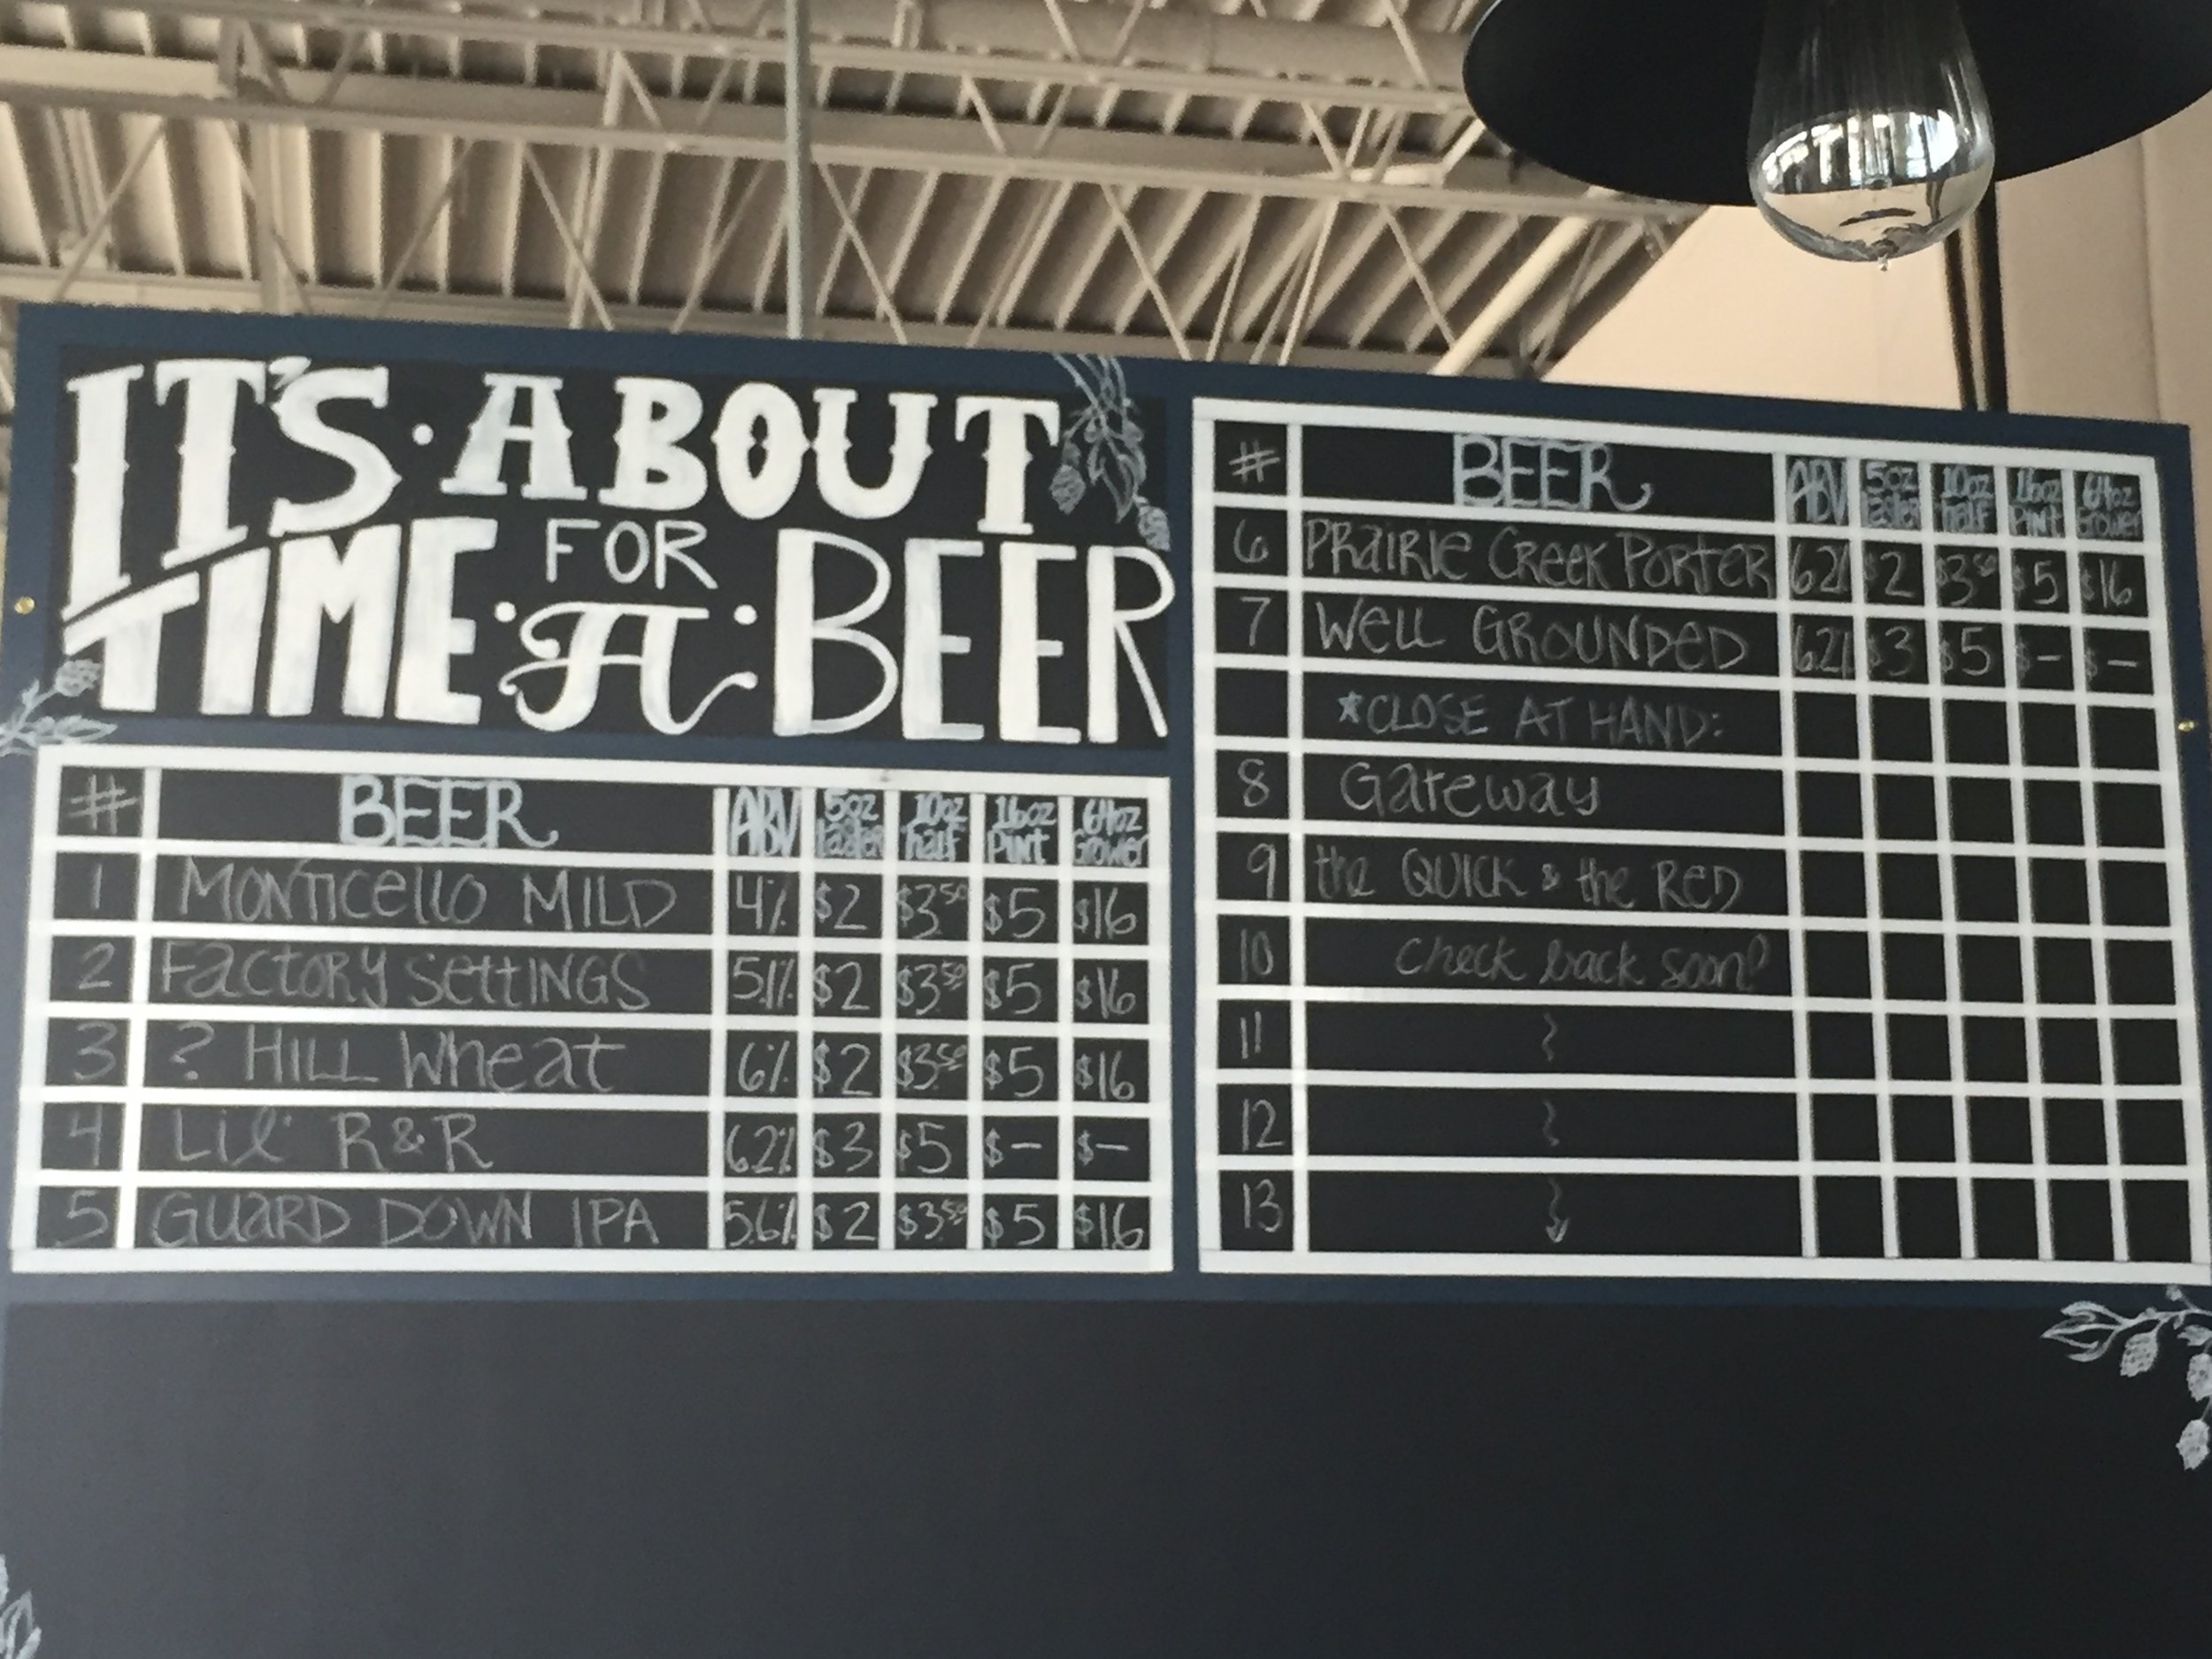 IT'S · ABOUT
TIME FOR · A · BEER
# BEER ABV 5oz taster 10oz half 16oz Pint 64oz Grower
1 MONTicello MILD 4% $2 $3.50 $5 $16
2 Factory SettINGS 5.1% $2 $3.50 $5 $16
3 ? HILL Wheat 6% $2 $3.50 $5 $16
4 Lil' R&R 6.2% $3 $5 $- $-
5 GUARD DOWN IPA 5.6% $2 $3.50 $5 $16
# BEER ABV 5oz taster 10oz half 16oz Pint 64oz Grower
6 PRAiRie CReek PORTER 6.2% $2 $3.50 $5 $16
7 Well GROUNDED 6.2% $3 $5 $- $-
*CLOSE AT HAND:
8 Gateway
9 the QUICK & the RED
10 Check back soon!
11
12
13